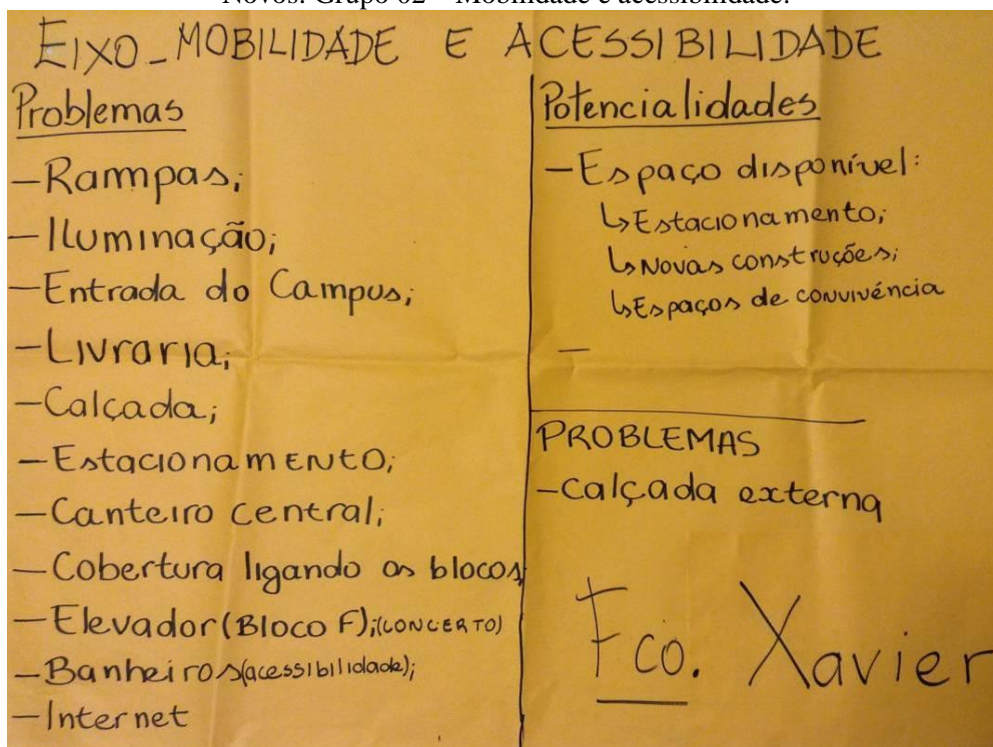 Novos. Grupo 02 – Mobilidade e acessibilidade.
EIXO - MOBILIDADE E ACESSIBILIDADE
Problemas
- Rampas;
- Iluminação;
- Entrada do Campus;
- Livraria;
- Calçada;
- Estacionamento;
- Canteiro central;
- Cobertura ligando os blocos
- Elevador (Bloco F); (CONCERTO)
- Banheiros (acessibilidade);
- Internet
Potencialidades
- Espaço disponível:
↳ Estacionamento;
↳ Novas construções;
↳ Espaços de convivência
-
PROBLEMAS
- Calçada externa
Fco. Xavier